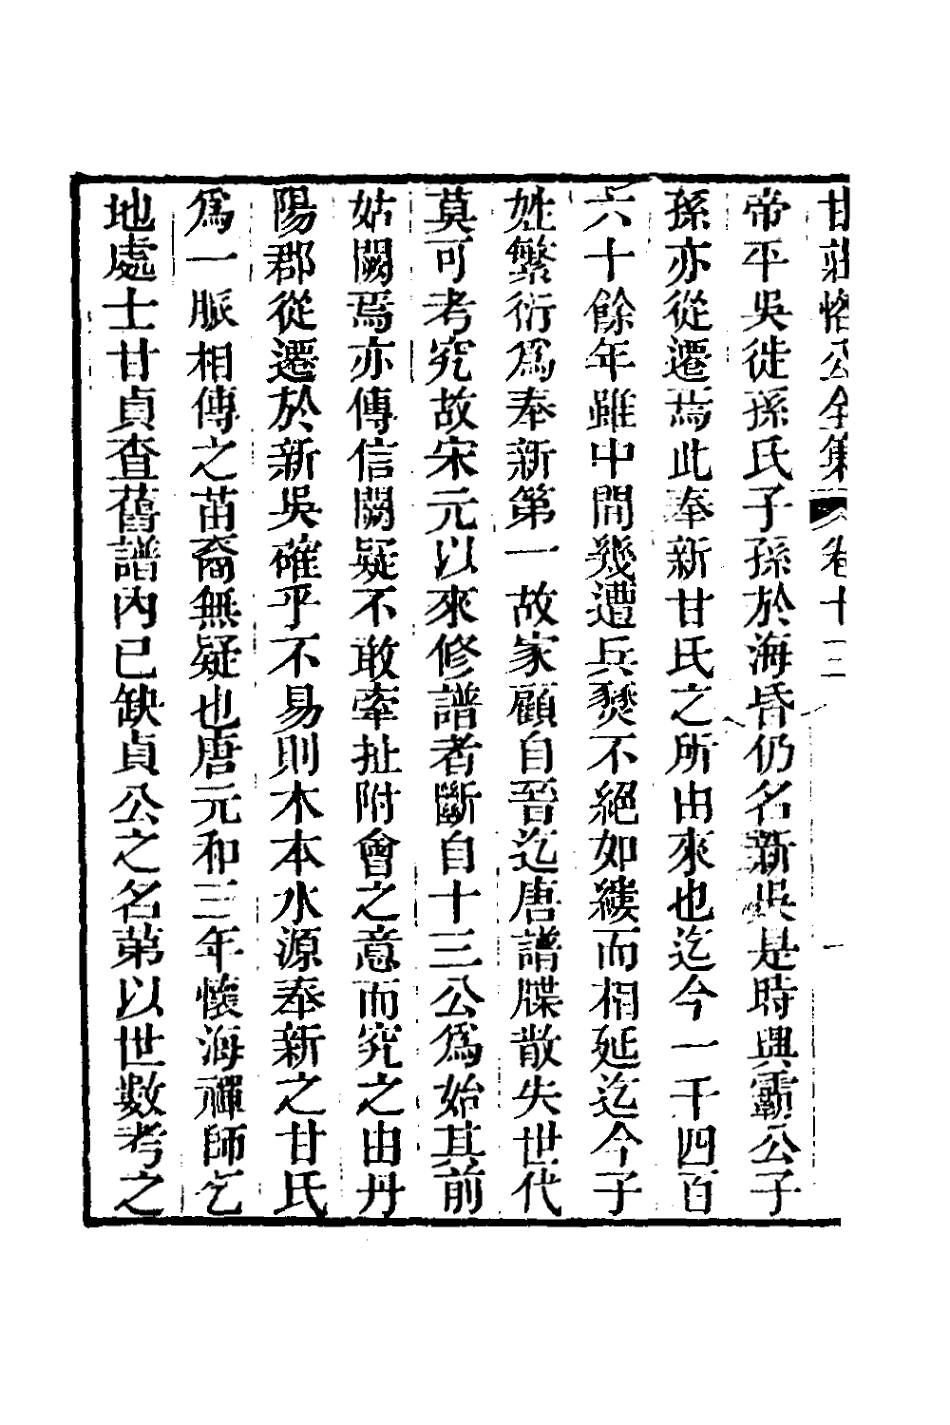 甘莊恪公全集 卷十三
帝平吳徙孫氏子孫於海昏仍名新吳是時興霸公子
孫亦從遷焉此奉新甘氏之所由來也迄今一千四百
六十餘年雖中間幾遭兵燹不絕如縷而相延迄今子
姓繁衍爲奉新第一故家顧自晉迄唐譜牒散失世代
莫可考究故宋元以來修譜者斷自十三公爲始其前
姑闕焉亦傳信闕疑不敢牽扯附會之意而究之由丹
陽郡從遷於新吳確乎不易則木本水源奉新之甘氏
爲一脈相傳之苗裔無疑也唐元和三年懷海禪師乞
地處士甘貞查舊譜內已缺貞公之名第以世數考之